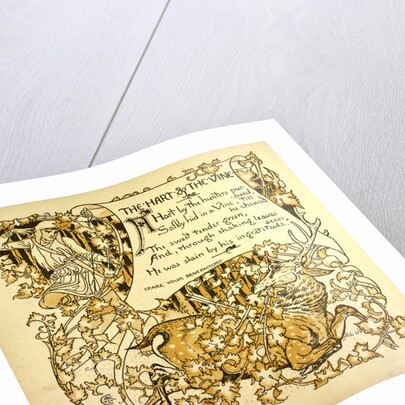 THE HART & THE VINE
A Hart by the hunters pursued
Safely hid in a Vine, till
he chewed
The sweet tender green,
And, through shaking leaves
seen,
He was slain by his ingratitude.
SPARE YOUR BENEFACTORS